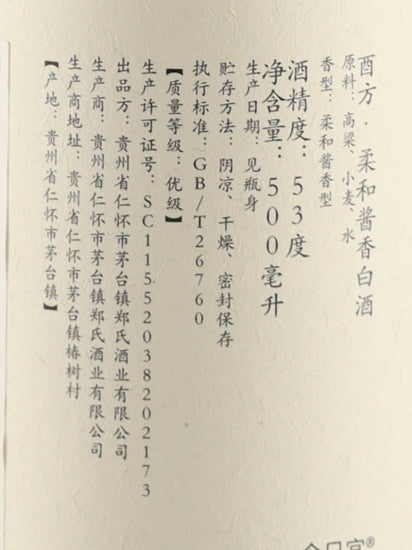 酉方·柔和酱香白酒
原料：高粱、小麦、水
香型：柔和酱香型
酒精度：53度
净含量：500毫升
生产日期：见瓶身
贮存方法：阴凉、干燥、密封保存
执行标准：GB/T26760
【质量等级：优级】
生产许可证号：SC11552038202173
出品方：贵州省仁怀市茅台镇郑氏酒业有限公司
生产商：贵州省仁怀市茅台镇郑氏酒业有限公司
生产商地址：贵州省仁怀市茅台镇椿树村
【产地：贵州省仁怀市茅台镇】